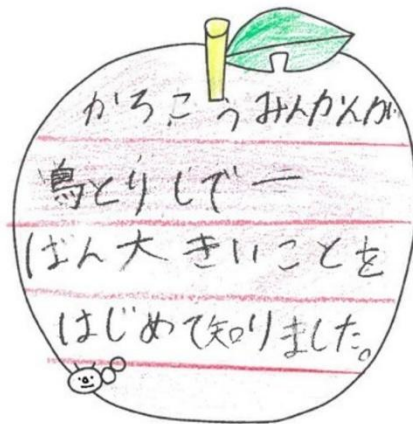 かろこうみんかんが
鳥とりしで一
ばん大きいことを
はじめて知りました。